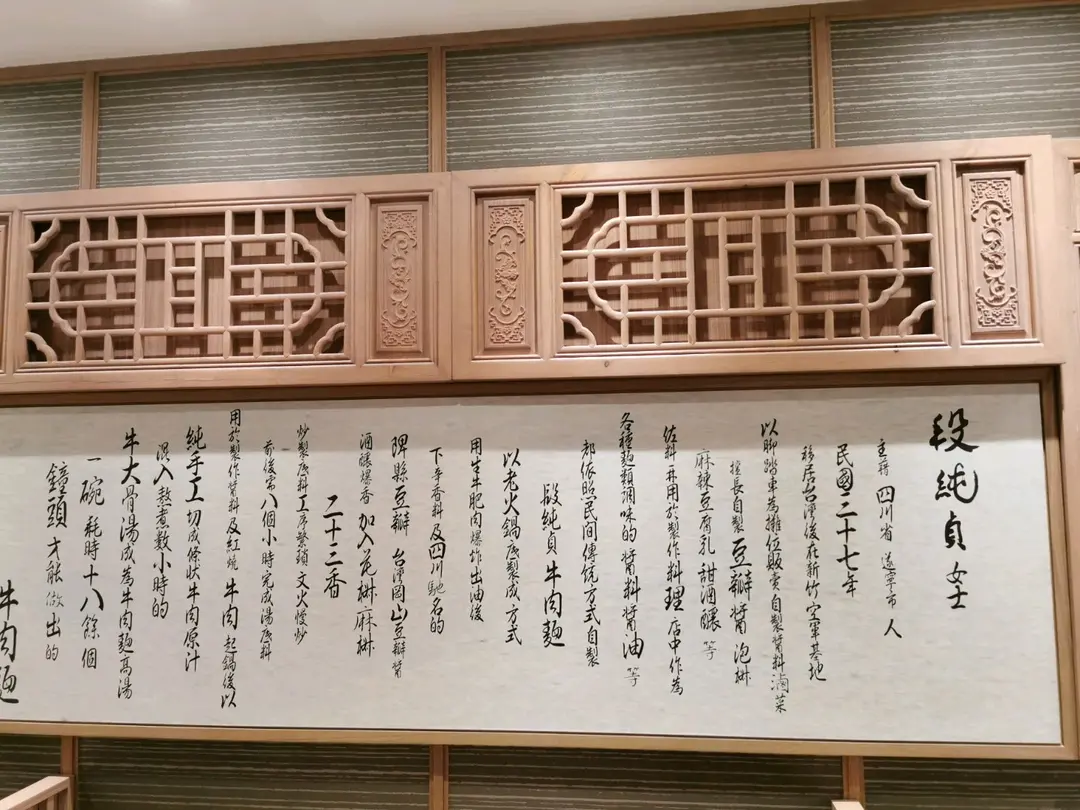 段純貞女士
主籍 四川省 遂寧市 人
民國三十七年
移居台灣後在新竹空軍基地
以腳踏車為攤位販賣自製醬料滷菜
擅長自製豆瓣醬泡椒
麻辣豆腐乳甜酒釀等
佐料再用於製作料理店中作為
各種麵類調味的醬料醬油等
都依照民間傳統方式自製
段純貞牛肉麵
以老火鍋底製成方式
用生牛肥肉爆炸出油後
下辛香料及四川馳名的
郫縣豆瓣 台灣岡山豆瓣醬
酒釀爆香加入花椒麻椒
二十三香
炒製底料工序繁瑣 文火慢炒
前後需八個小時完成湯底料
用於製作醬料及紅燒牛肉起鍋後以
純手工切成條狀牛肉原汁
混入熬煮數小時的
牛大骨湯成為牛肉麵高湯
一碗耗時十八餘個
鐘頭才能做出的
牛肉麵